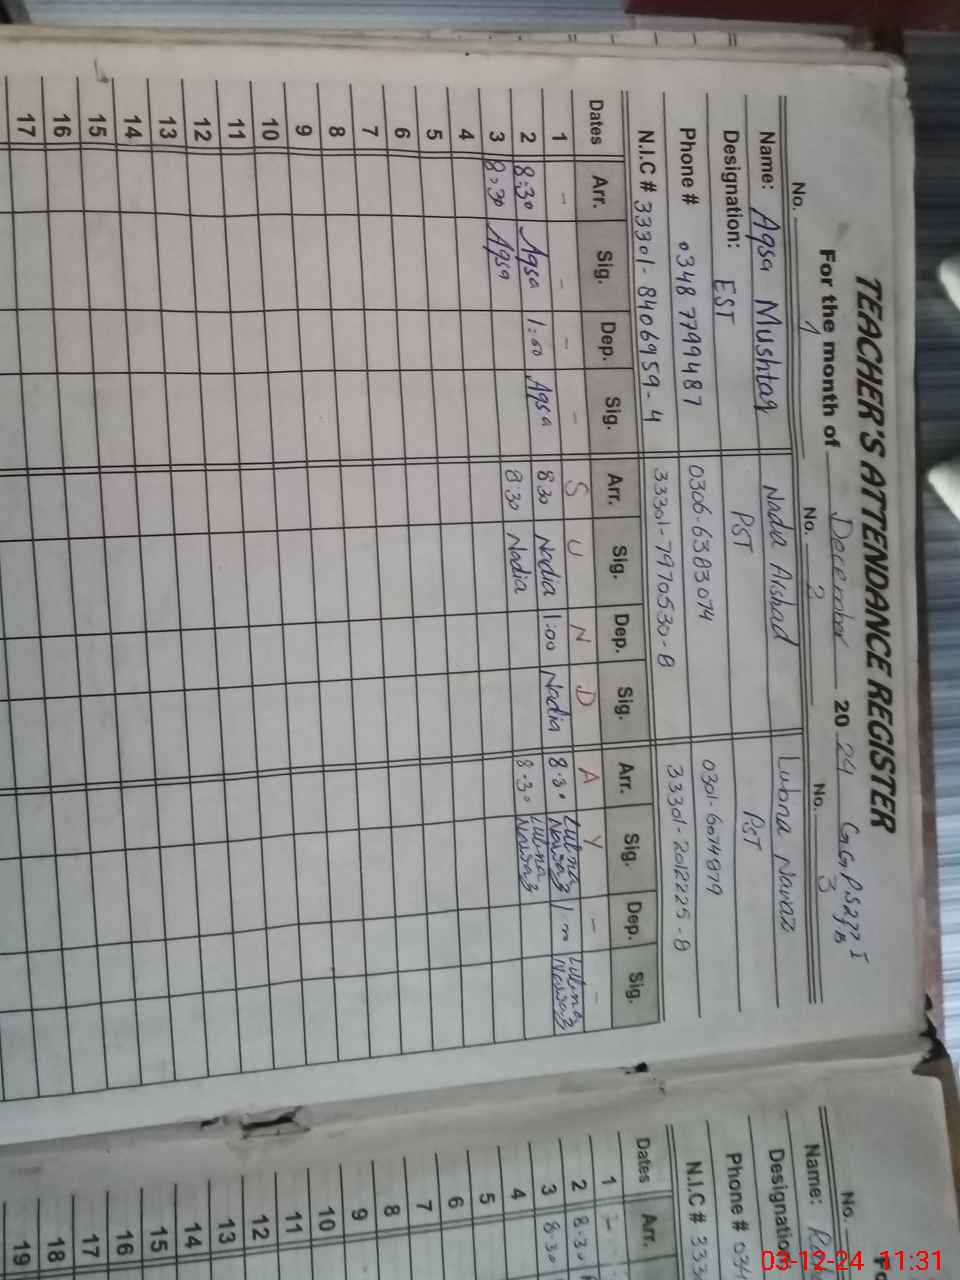 TEACHER'S ATTENDANCE REGISTER
For the month of December 2024 G.G.P.S 277
No. 1 No. 2 No. 3
Name: Aqsa Mushtaq Nadia Arshad Lubna Nawaz
Designation: EST PST PST
Phone # 0348 7799487 0306-6383074 0301-6074879
N.I.C # 33301-8406959-4 33301-7970530-8 33301-2012225-8
Dates Arr. Sig. Dep. Sig. Arr. Sig. Dep. Sig. Arr. Sig. Dep. Sig.
1 - - - - S U N D A Y - -
2 8:30 Aqsa 1:00 Aqsa 8:30 Nadia 1:00 Nadia 8:30 Lubna Nawaz 1:00 Lubna Nawaz
3 8:30 Aqsa 8:30 Nadia 8:30 Lubna Nawaz
4
5
6
7
8
9
10
11
12
13
14
15
16
17
No.
Name:
Designation
Phone # 034
N.I.C # 333
Dates Arr.
1 -
2 8:30
3 8:30
4
5
6
7
8
9
10
11
12
13
14
15
16
17
18
19
03-12-24 11:31